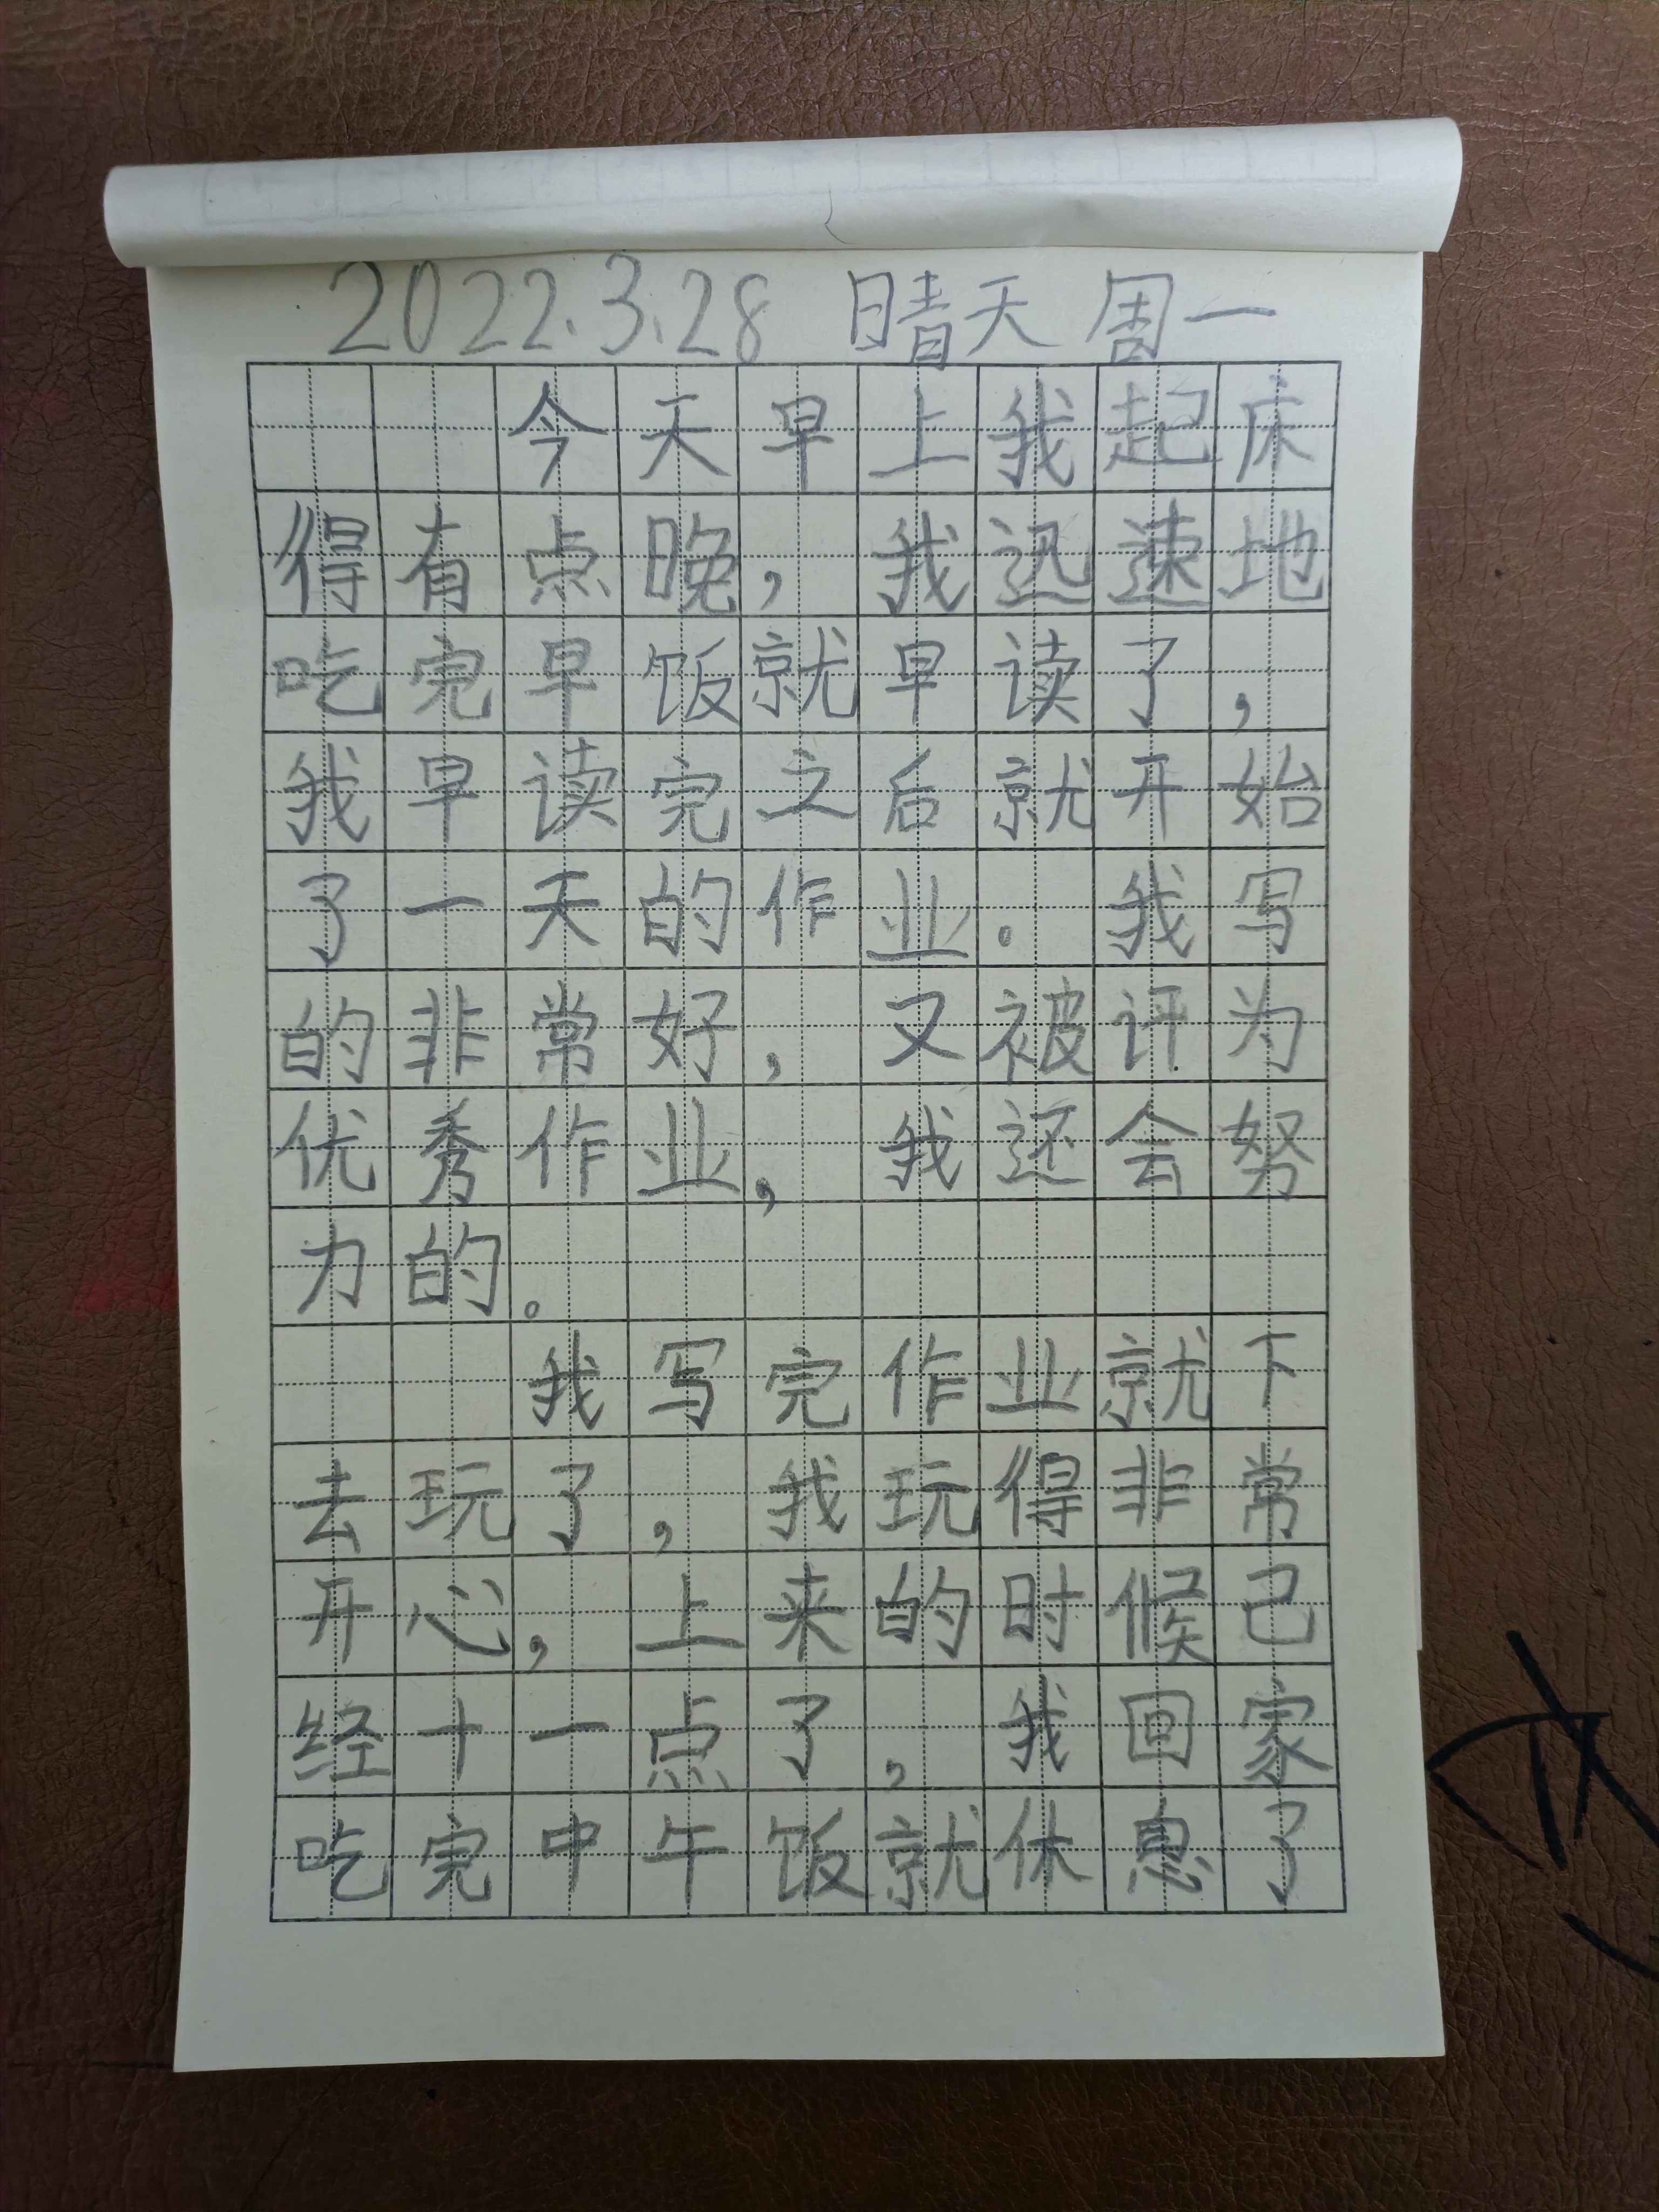 2022.3.28 晴天 周一
今天早上我起床
得有点晚，我迅速地
吃完早饭就早读了，
我早读完之后就开始
了一天的作业。我写
的非常好，又被评为
优秀作业，我还会努
力的。
我写完作业就下
去玩了，我玩得非常
开心，上来的时候已
经十一点了，我回家
吃完中午饭就休息了